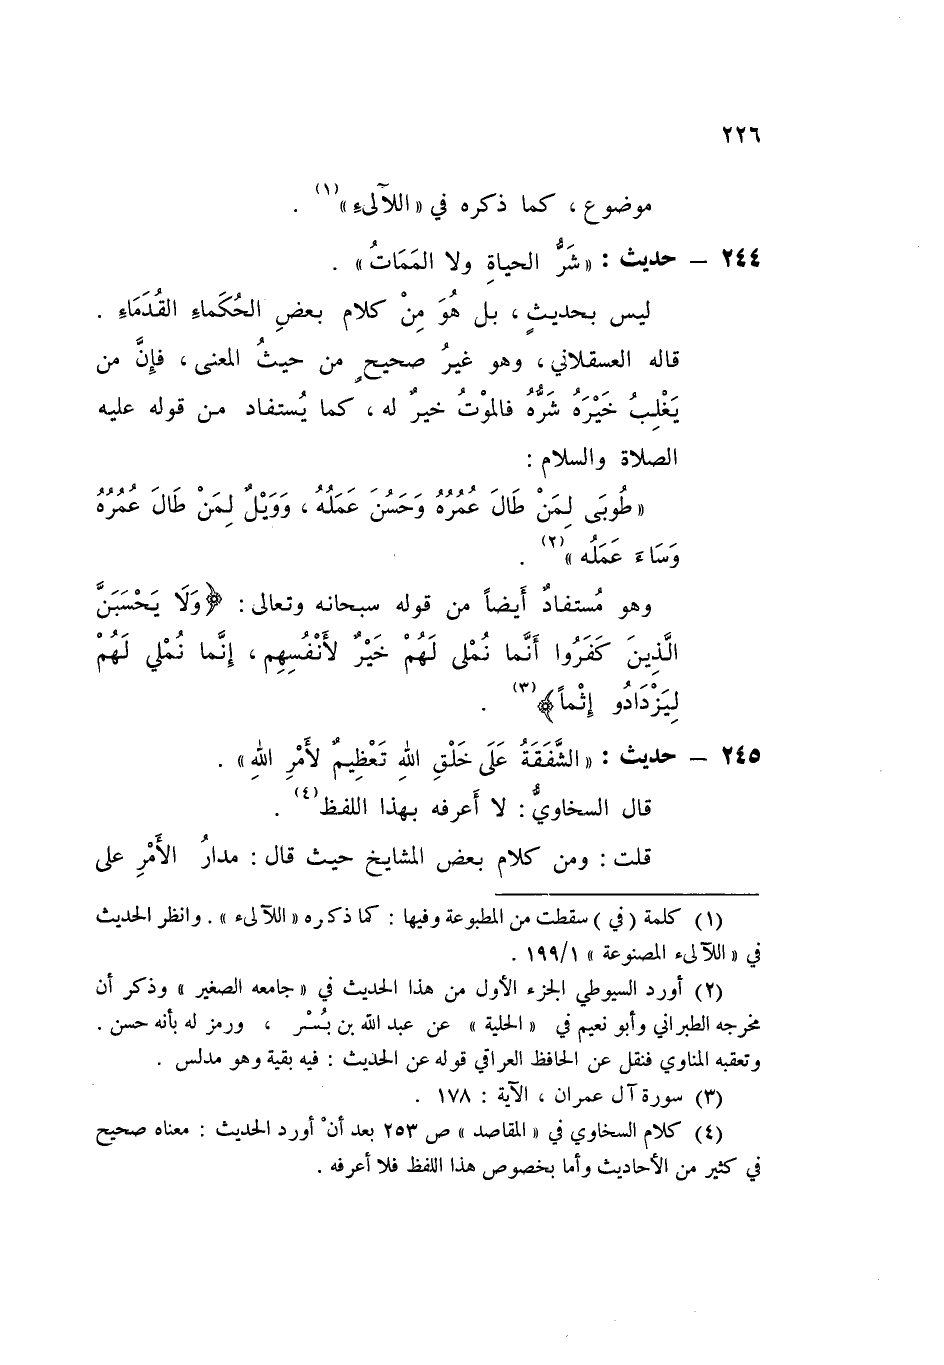 ٢٢٦
موضوع ، كما ذكره في « اللآلىء »(١) .
٢٤٤ – حديث : « شَرُّ الحياةِ ولا المَمَاتُ » .
ليس بحديثٍ ، بل هُوَ مِنْ كلام بعضِ الحُكَماءِ القُدَمَاءِ .
قاله العسقلاني ، وهو غيرُ صحيحٍ من حيثُ المعنى ، فإنَّ من
يَغْلِبُ خَيْرَهُ شرُّهُ فالموْتُ خيرٌ له ، كما يُستفاد من قوله عليه
الصلاة والسلام :
« طُوبَى لِمَنْ طَالَ عُمُرُهُ وَحَسُنَ عَمَلُهُ ، وَوَيْلٌ لِمَنْ طَالَ عُمُرُهُ
وَسَاءَ عَمَلُه »(٢) .
وهو مُستفادٌ أَيضاً من قوله سبحانه وتعالى : ﴿وَلَا يَحْسَبَنَّ
الَّذِينَ كَفَرُوا أَنَّما نُمْلي لَهُمْ خَيْرٌ لأَنْفُسِهِم ، إِنَّما نُمْلي لَهُمْ
لِيَزْدَادُو إِثْماً﴾(٣) .
٢٤٥ – حديث : « الشَّفَقَةُ عَلَى خَلْقِ اللهِ تَعْظِيمٌ لأَمْرِ اللهِ » .
قال السخاويُّ : لا أَعرفه بهذا اللفظ(٤) .
قلت : ومن كلام بعض المشايخ حيث قال : مدارُ الأَمْرِ على
(١) كلمة ( في ) سقطت من المطبوعة وفيها : كما ذكره « اللآلىء » . وانظر الحديث
في « اللآلىء المصنوعة » ١/١٩٩ .
(٢) أورد السيوطي الجزء الأول من هذا الحديث في « جامعه الصغير » وذكر أن
مخرجه الطبراني وأبو نعيم في « الحلية » عن عبد الله بن بُسْر ، ورمز له بأنه حسن .
وتعقبه المناوي فنقل عن الحافظ العراقي قوله عن الحديث : فيه بقية وهو مدلس .
(٣) سورة آل عمران ، الآية : ١٧٨ .
(٤) كلام السخاوي في « المقاصد » ص ٢٥٣ بعد أنْ أورد الحديث : معناه صحيح
في كثير من الأحاديث وأما بخصوص هذا اللفظ فلا أعرفه .